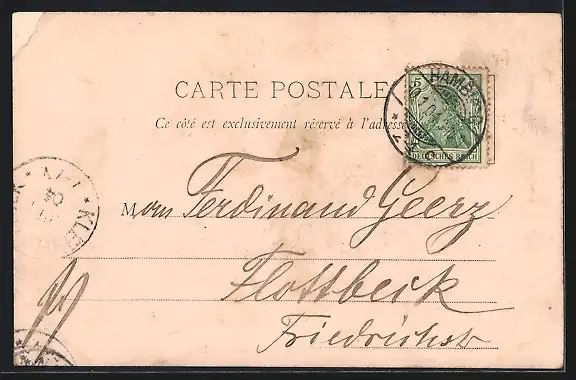 CARTE POSTALE
Ce côté est exclusivement réservé à l'adresse
HAMB
1.04
5
DEUTSCHES REICH
KLEIN
Ferdinand Geerz
Flottbeck
Friedrichstr